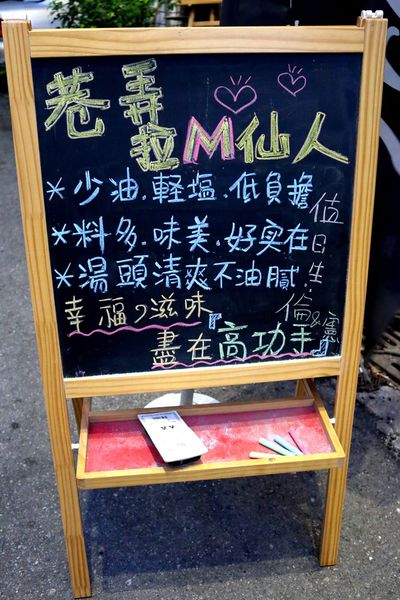 巷弄拉M仙人
*少油.輕塩.低負擔
*料多.味美.好实在
*湯頭清爽不油膩.
幸福の滋味,
盡在高功手
值日生
倫&憲